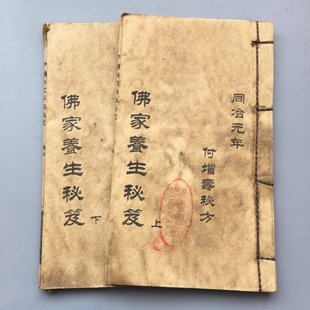 同治元年
付增壽秘方
佛家養生秘笈
上
佛家養生秘笈
下